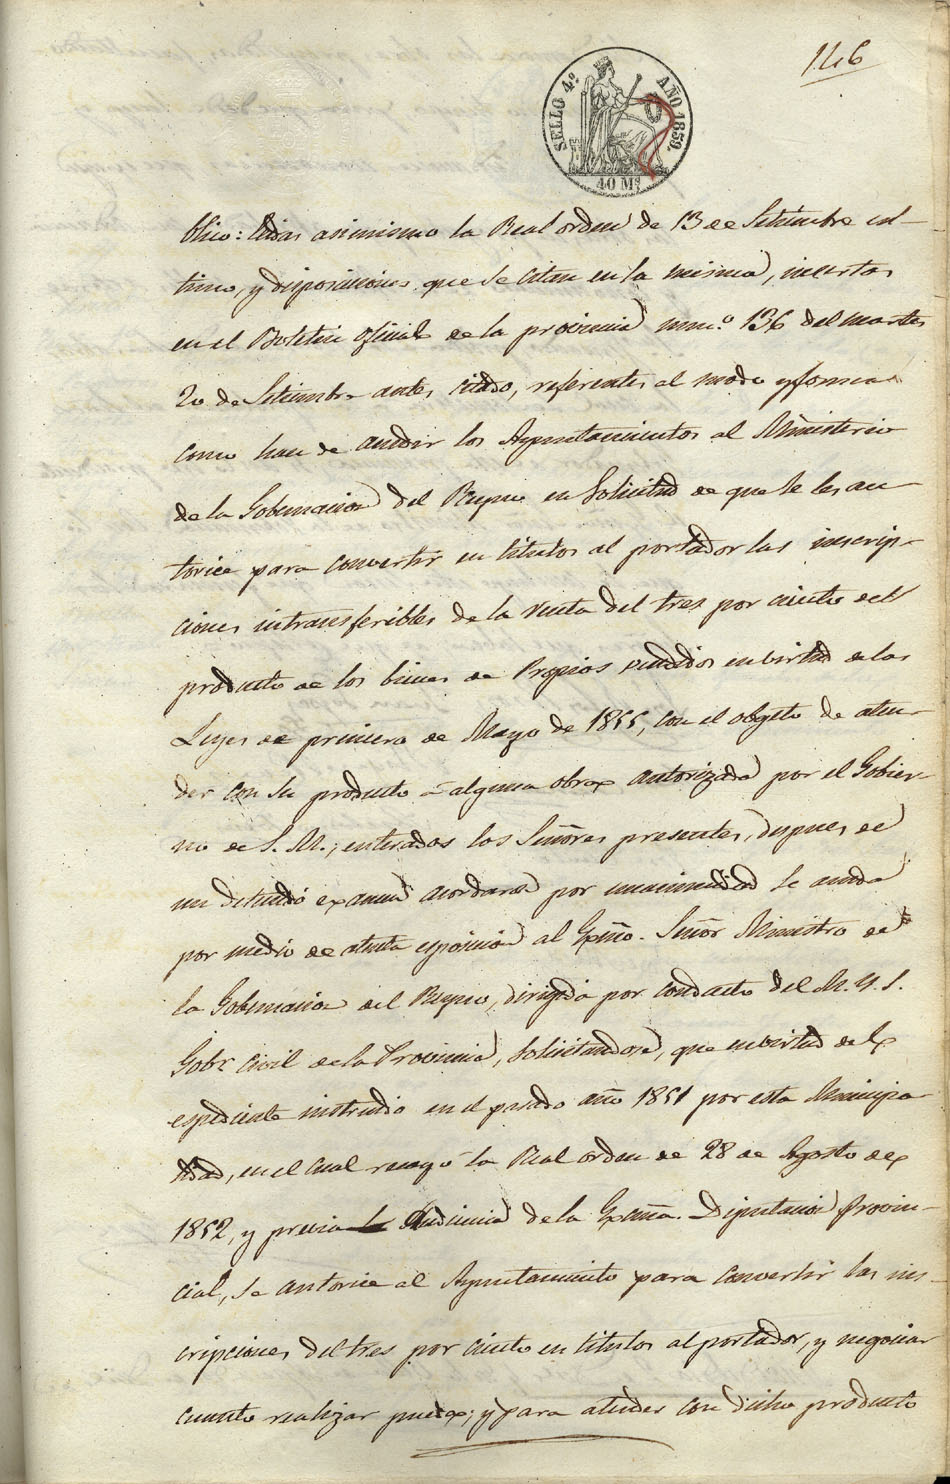 146
SELLO 4º AÑO 1859.
40 Ms
blico: leidas asimismo la Real orden de 13 de Setiembre ul-
timo, y disposiciones que se citan en la misma, insertas
en el Boletin oficial de la provincia num.º 136 del martes
20 de Setiembre antes citado, referentes al modo y forma
como han de acudir los Ayuntamientos al Ministerio
de la Gobernacion del Reyno en Solicitud de que se les au
torice para convertir en titulos al portador las inscrip-
ciones intransferibles de la renta del tres por ciento del
producto de los bienes de Propios vendidos en virtud de las
Leyes de primero de Mayo de 1855, con el objeto de aten-
der con su producto á alguna obra autorizada por el Gobier-
no de S. M.; enterados los Señores presentes, despues de
un detenido examen acordaron por unanimidad se acuda
por medio de atenta esposicion al Exmo. Señor Ministro de
la Gobernacion del Reyno, dirigida por conducto del M. Y. S.
Gobr. Civil de la Provincia, solicitandose, que en virtud del
espediente instruido en el pasado año 1851 por esta Municipa
lidad, en el cual recayó la Real orden de 28 de Agosto de
1852, y previa audiencia de la Exma. Diputacion Provin-
cial, se autorice al Ayuntamiento para convertir las ins-
cripciones del tres por ciento en titulos al portador, y negociar
cuanto realizar pueda; y para atender con dicho producto